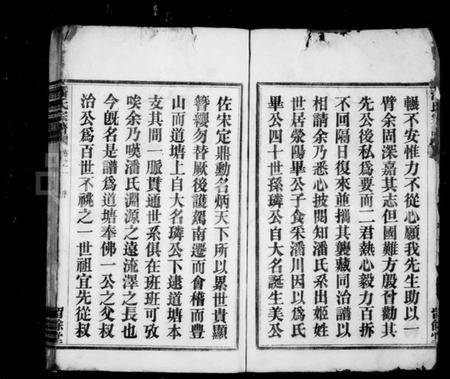 輾不安惟力不從心願我先生助以一
臂余固深嘉其志但國難方殷曾勸其
先公後私爲要而二君熱心毅力百拆
不回隔日復來並攜其襲藏同治譜以
相請余乃悉心披閱知潘氏系出姬姓
世居滎陽畢公子食采潘川因以爲氏
畢公四十世孫璘公自大名誕生美公
佐宋定鼎功名炳天下所以累世貴顯
簪纓勿替厥後護駕南遷而會稽而豐
山而道塘上自大名璘公下逮道塘本
支其間一脈貫通世系俱在班班可攷
唉余乃嘆潘氏淵源之遠流澤之長也
今旣名是譜爲道塘奉佛一公之父叔
治公爲百世不祧之一世祖宜先從叔